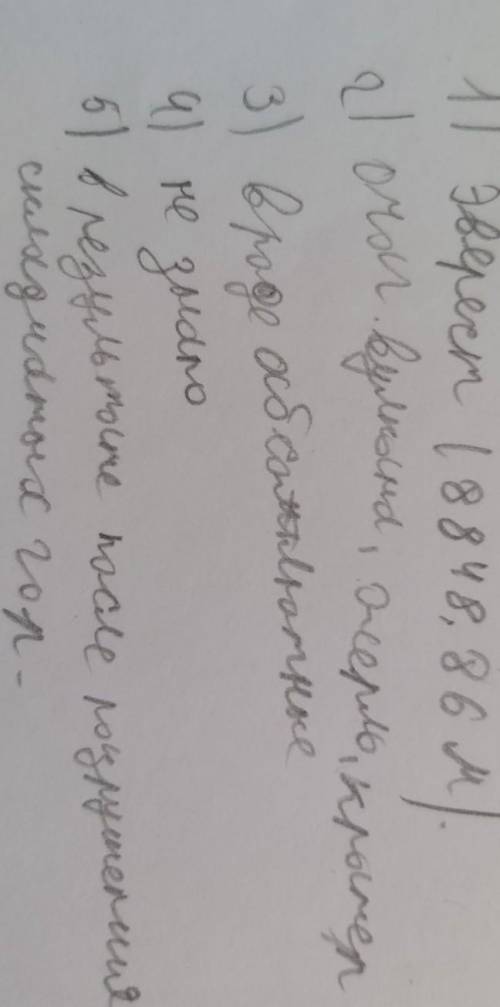 1) Эверест (8848,86 м).
2) очаг вулкана, жерло, кратер
3) вроде абсолютные
4) не знаю
5) в результате после разрушения
складчатых гор.